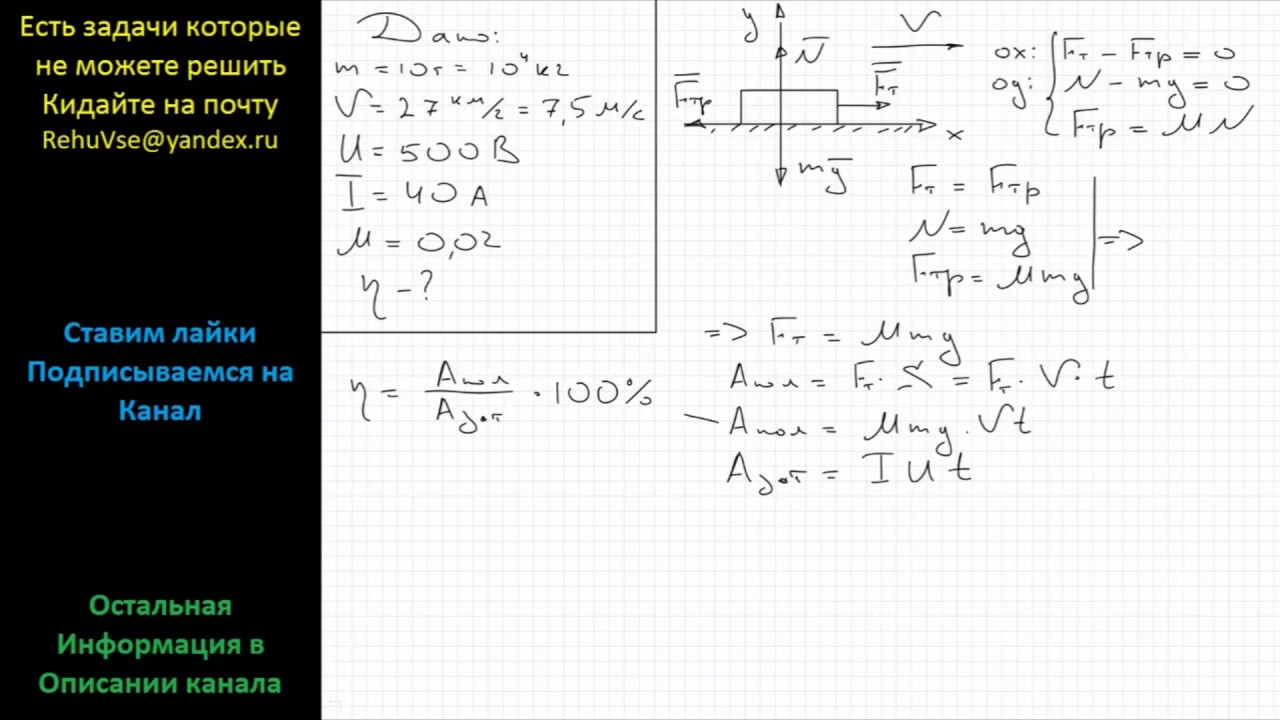 Есть задачи которые
не можете решить
Кидайте на почту
RehuVse@yandex.ru
Ставим лайки
Подписываемся на
Канал
Остальная
Информация в
Описании канала
Дано:
m = 10т = 10⁴ кг
V = 27 км/г = 7,5 м/с
U = 500 В
I = 40 А
μ = 0,02
η - ?
η = Aпол / Aзат · 100%
y
N
V
Fтр
Fт
x
mg
ox: Fт - Fтр = 0
oy: N - mg = 0
Fтр = μN
Fт = Fтр
N = mg
=>
Fтр = μmg
=> Fт = μmg
Aпол = Fт · S = Fт · V · t
Aпол = μmg · Vt
Aзат = I U t